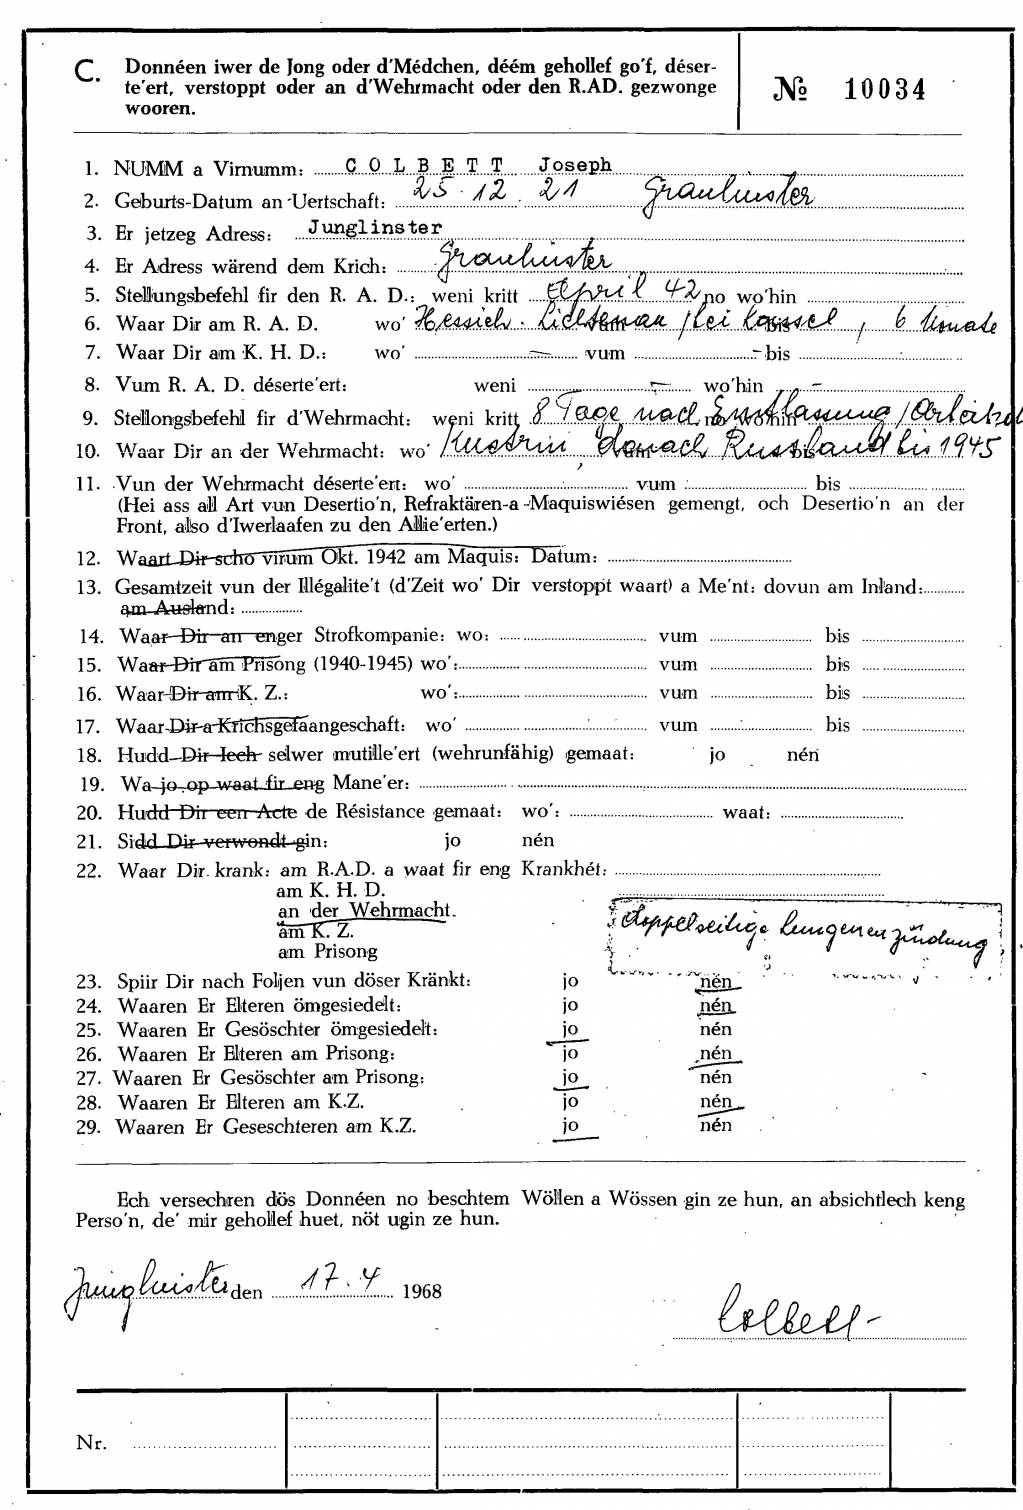 C. Donnéen iwer de Jong oder d'Médchen, déém gehollef go'f, déser-
te'ert, verstoppt oder an d'Wehrmacht oder den R.AD. gezwonge
wooren.
№ 10034
1. NUMM a Virnumm: COLBETT Joseph
2. Geburts-Datum an Uertschaft: 25.12.21 Graulinster
3. Er jetzeg Adress: Junglinster
4. Er Adress wärend dem Krich: Graulinster
5. Stellungsbefehl fir den R. A. D.: weni kritt April 42 no wo'hin
6. Waar Dir am R. A. D. wo' Hessich. Lichtenau / bei Kassel, 6 Monate
7. Waar Dir am K. H. D.: wo' — vum — bis
8. Vum R. A. D. déserte'ert: weni — wo'hin —
9. Stellongsbefehl fir d'Wehrmacht: weni kritt 8 Tage nach Entlassung / no wo'hin
10. Waar Dir an der Wehrmacht: wo' Kustrin, danach Russland bis 1945
11. Vun der Wehrmacht déserte'ert: wo' vum bis
(Hei ass all Art vun Desertio'n, Refraktären-a-Maquiswiésen gemengt, och Desertio'n an der
Front, also d'Iwerlaafen zu den Allie'erten.)
12. Waart Dir scho virum Okt. 1942 am Maquis: Datum:
13. Gesamtzeit vun der Illégalite't (d'Zeit wo' Dir verstoppt waart) a Me'nt: dovun am Inland:
am Ausland:
14. Waar Dir an enger Strofkompanie: wo: vum bis
15. Waar Dir am Prisong (1940-1945) wo': vum bis
16. Waar Dir am K. Z.: wo': vum bis
17. Waar Dir a Krichsgefaangeschaft: wo' vum bis
18. Hudd Dir Iech selwer mutille'ert (wehrunfähig) gemaat: jo nén
19. Wa jo op waat fir eng Mane'er:
20. Hudd Dir een Acte de Résistance gemaat: wo': waat:
21. Sidd Dir verwondt gin: jo nén
22. Waar Dir krank: am R.A.D. a waat fir eng Krankhét:
am K. H. D.
an der Wehrmacht.
am K. Z.
am Prisong
doppelseitige Lungenenzündung
23. Spiir Dir nach Foljen vun döser Kränkt: jo nén
24. Waaren Er Elteren ömgesiedelt: jo nén
25. Waaren Er Gesöschter ömgesiedelt: jo nén
26. Waaren Er Elteren am Prisong: jo nén
27. Waaren Er Gesöschter am Prisong: jo nén
28. Waaren Er Elteren am K.Z. jo nén
29. Waaren Er Geseschteren am K.Z. jo nén
Ech versechren dös Donnéen no beschtem Wöllen a Wössen gin ze hun, an absichtlech keng
Perso'n, de' mir gehollef huet, nöt ugin ze hun.
Junglinster den 17.4 1968
Colbett
Nr.